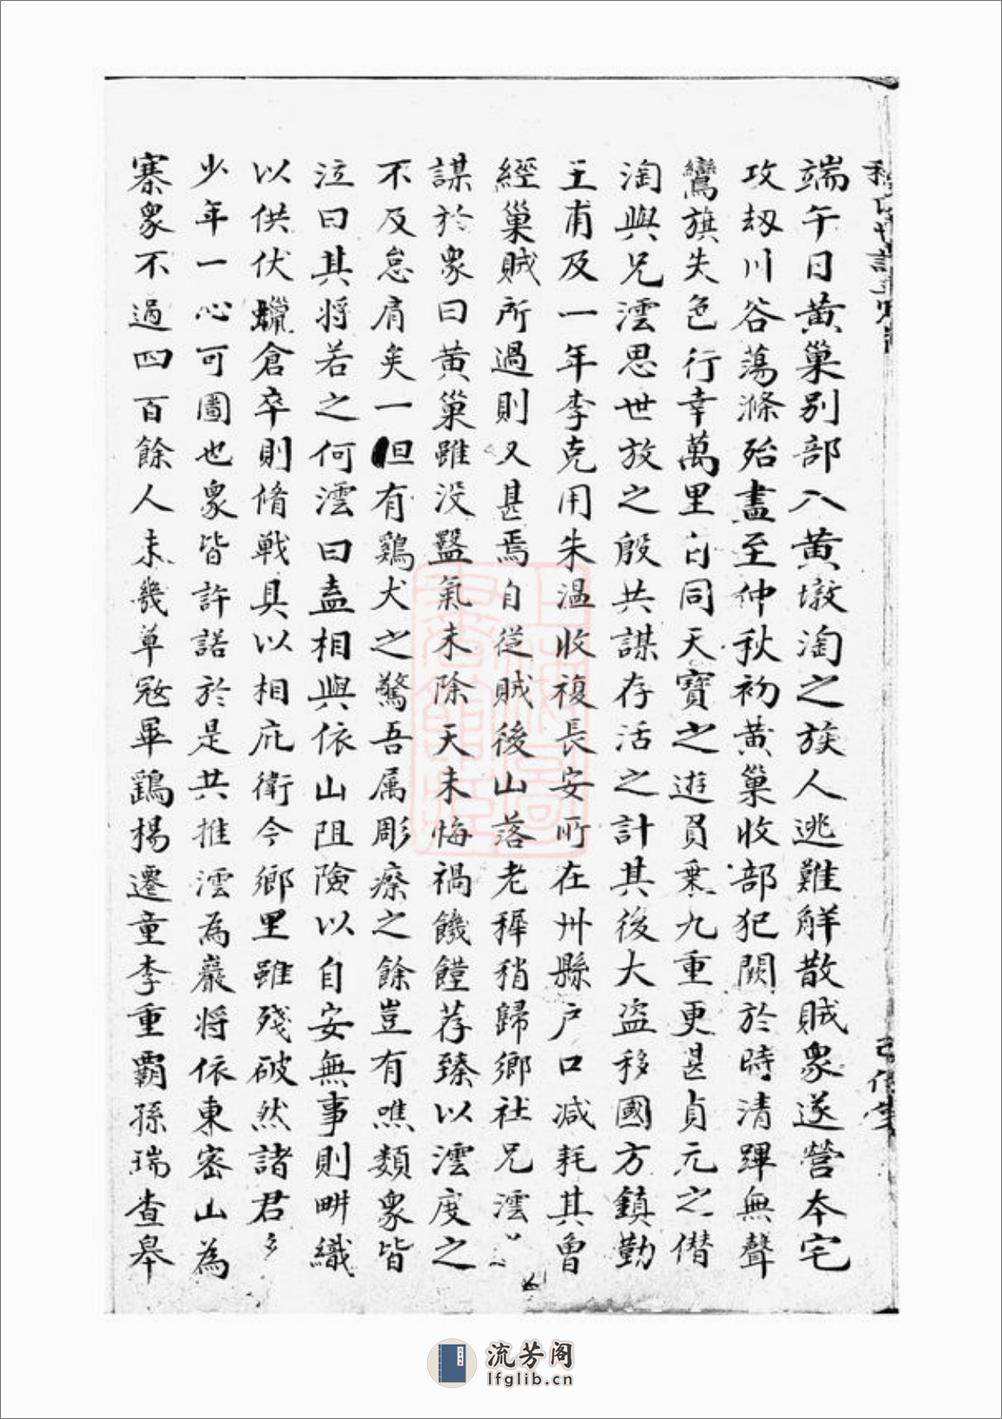 端午日黄巢别部入黄墩淘之族人逃難觧散賊衆遂營本宅
攻刼川谷蕩滌殆盡至仲秋初黄巢收部犯闕於時清蹕無聲
鸞旗失色行幸萬里同天寶之遊員乗九重更甚貞元之僣
淘與兄澐思世放之殷共謀存活之計其後大盗移國方鎮勤
王甫及一年李克用朱温收複長安所在州縣户口减耗其曽
經巢賊所過則又甚焉自從賊後山落老穉稍歸鄉社兄澐
謀於衆曰黄巢雖没䀋氣未除天未悔禍饑饉荐臻以澐度之
不及息肩矣一但有鷄犬之驚吾属彫瘵之餘豈有噍類衆皆
泣曰其将若之何澐曰盍相與依山阻險以自安無事則畊織
以供伏蠟倉卒則脩戰具以相庇衛今鄉里雖殘破然諸君多
少年一心可圖也衆皆許諾於是共推澐為巖将依東密山為
寨衆不過四百餘人未幾草冦畢鷂楊遷童李重霸孫瑞查皋
流芳阁
lfglib.cn